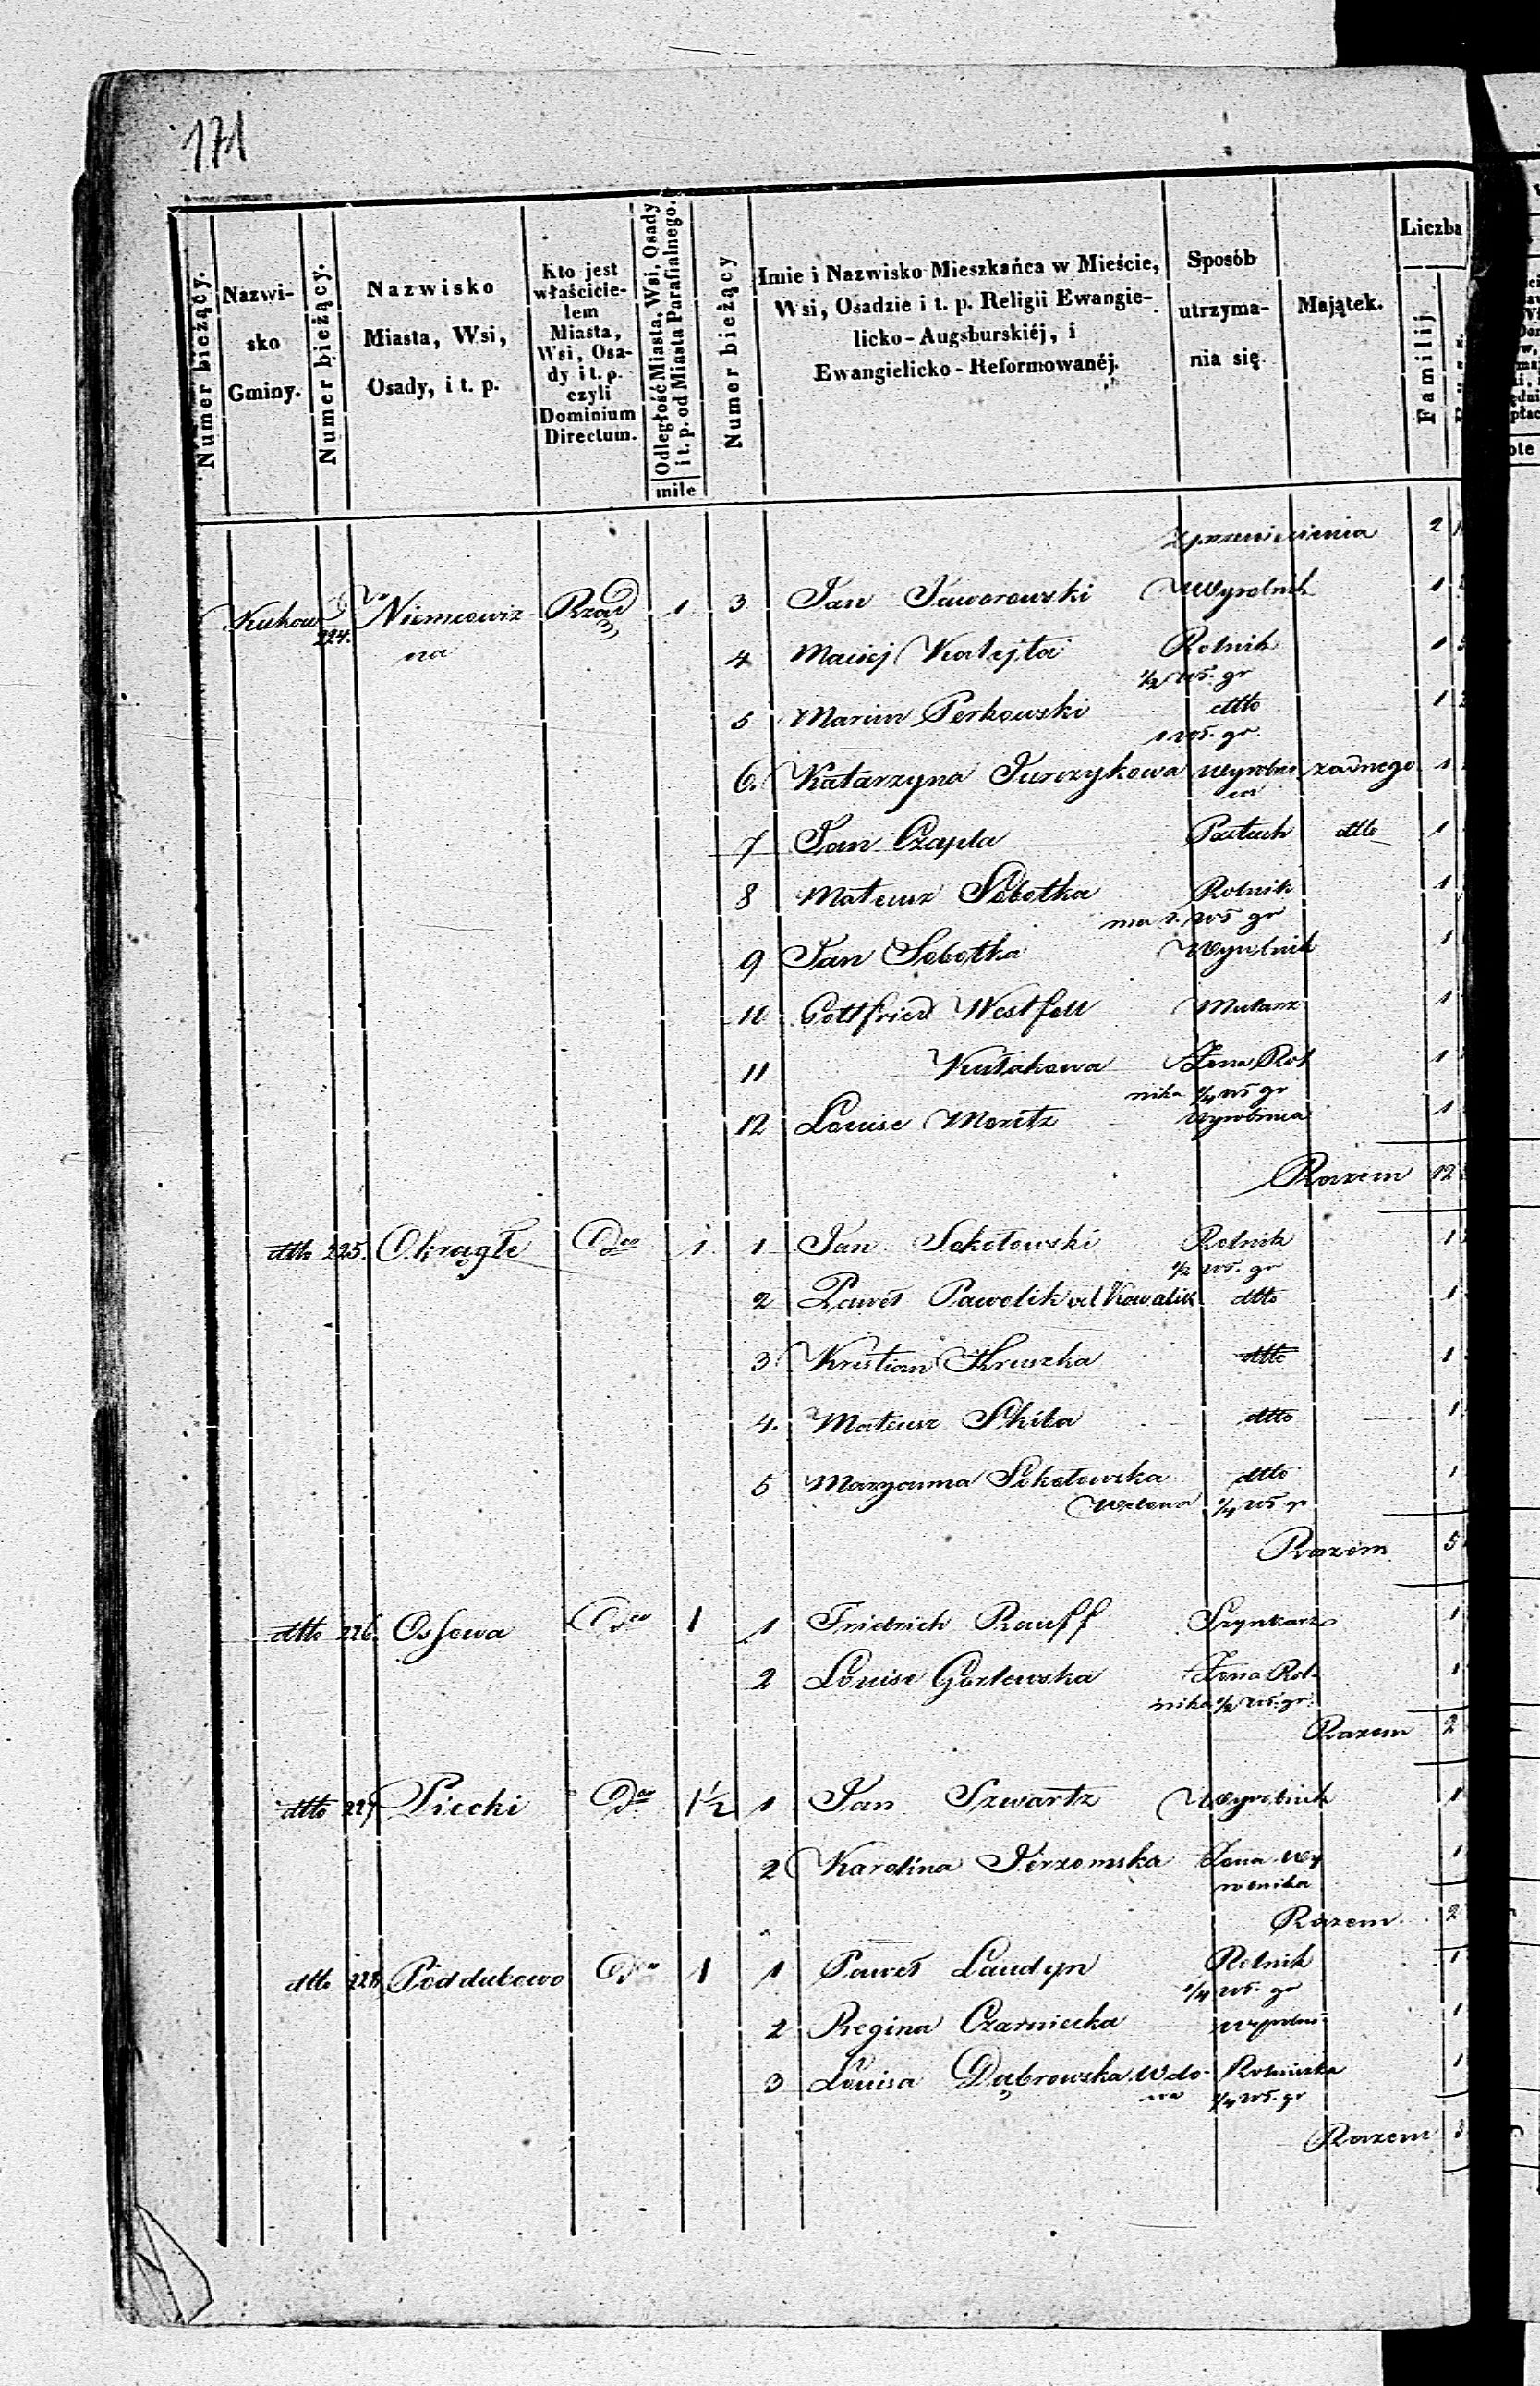 171
Numer bieżący.
Nazwi-
sko
Gminy.
Numer bieżący.
Nazwisko
Miasta, Wsi,
Osady, i t. p.
Kto jest
właścicie-
lem
Miasta,
Wsi, Osa-
dy i t. p.
czyli
Dominium
Directum.
Odległość Miasta, Wsi, Osady
i t. p. od Miasta Parafialnego.
mile
Numer bieżący
Imie i Nazwisko Mieszkańca w Mieście,
Wsi, Osadzie i t. p. Religii Ewangie-
licko-Augsburskiéj, i
Ewangielicko-Reformowanéj.
Sposób
utrzyma-
nia się
Majątek.
Liczba
Familij
z przeniesienia 2
Kukow 224. Niemcowiz- Rząd 1 3 Jan Jaworowski Wyrobnik 1
na 4 Maciej Kalejta Rolnik 1
1/2 wł. gr
5 Marcin Perkowski dtto 1
1 wł. gr.
6. Katarzyna Jurczykowa Wyrobni żadnego 1
ca
7 Jan Czapla Pastuch dtto 1
8 Mateusz Sobotka Rolnik 1
ma 1. wł gr
9 Jan Sobotka Wyrobnik 1
10 Gottfried Westfell Mularz 1
11 Kułakowa Żona Rol 1
nika 1/4 wł gr
12 Louise Moritz Wyrobnica 1
Razem 12
dtto 225. Okrągłe Dto 1 1 Jan Sokołowski Rolnik 1
1/2 wł. gr
2 Paweł Pawelik vel Kowalik dtto 1
3 Kristian Kruszka dtto 1
4. Mateusz Skiba dtto 1
5 Maryanna Sokołowska dtto 1
Wdowa 1/4 wł gr
Razem 5
dtto 226. Ossowa Dto 1 1 Friedrich Rauff Szynkarz 1
2 Louise Gorlewska Żona Rol- 1
nika 1/2 wł. gr.
Razem 2
dtto 227 Piecki Dto 1 1/2 1 Jan Szwartz Wyrobnik 1
2 Karolina Jerzomska Żona Wy 1
robnika
Razem 2
dtto 228 Poddubowo Dto 1 1 Paweł Laudyn Rolnik 1
1/4 wł. gr
2 Regina Czarniecka Wyrobni- 1
3 Louisa Dąbrowska Wdo- Rolniczka 1
wa 1/4 wł. gr
Razem 3